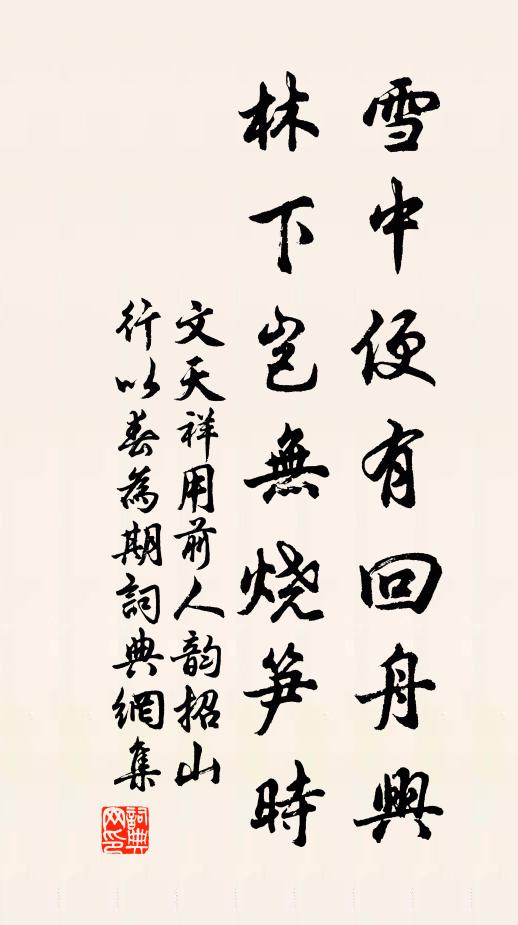 雪中便有回舟興
林下岂無烧笋時
文天祥用前人韵招山
行以春為期詞典網集
詞典网印